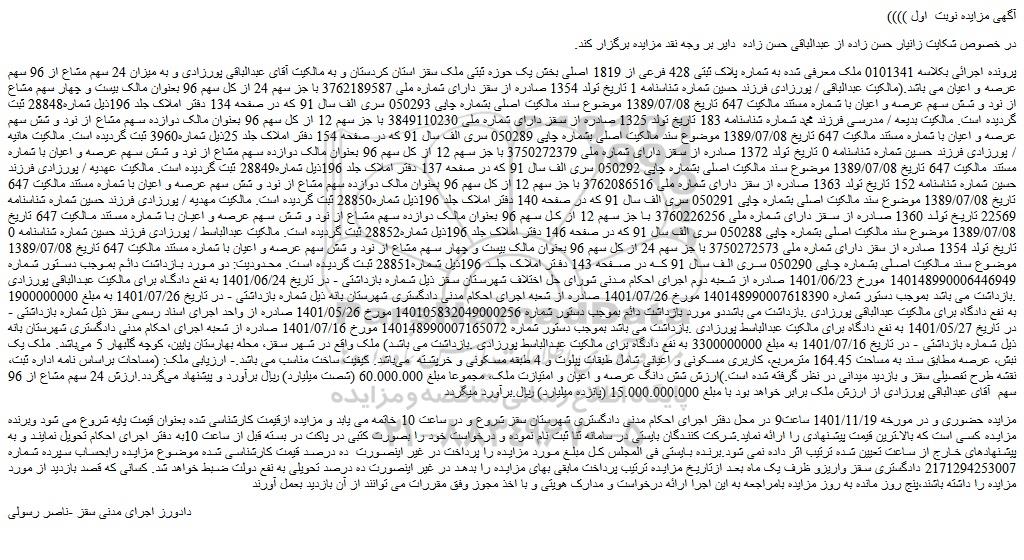 آگهی مزایده نوبت  اول ))))
در خصوص شکایت زانیار حسن زاده از عبدالباقی حسن زاده  دایر بر وجه نقد مزایده برگزار کند.
پرونده اجرائی بکلاسه 0101341 ملک معرفی شده به شماره پلاک ثبتی 428 فرعی از 1819 اصلی بخش یک حوزه ثبتی ملک سقز استان کردستان و به مالکیت آقای عبدالباقی پورزادی و به میزان 24 سهم مشاع از 96 سهم
عرصه و اعیان می باشد.(مالکیت عبدالباقی / پورزادی فرزند حسین شماره شناسنامه 1 تاریخ تولد 1354 صادره از سقز دارای شماره ملی 3762189587 با جز سهم 24 از کل سهم 96 بعنوان مالک بیست و چهار سهم مشاع
از نود و شش سهم عرصه و اعیان با شماره مستند مالکیت 647 تاریخ 1389/07/08 موضوع سند مالکیت اصلی بشماره چاپی 050293 سری الف سال 91 که در صفحه 134 دفتر املاک جلد 196ذیل شماره28848 ثبت
گردیده است. مالکیت بدیعه / مدرسی فرزند محمد شماره شناسنامه 183 تاریخ تولد 1325 صادره از سقز دارای شماره ملی 3849110230 با جز سهم 12 از کل سهم 96 بعنوان مالک دوازده سهم مشاع از نود و شش سهم
عرصه و اعیان با شماره مستند مالکیت 647 تاریخ 1389/07/08 موضوع سند مالکیت اصلی بشماره چاپی 050289 سری الف سال 91 که در صفحه 154 دفتر املاک جلد 25ذیل شماره3960 ثبت گردیده است. مالکیت هانیه
/ پورزادی فرزند حسین شماره شناسنامه 0 تاریخ تولد 1372 صادره از سقز دارای شماره ملی 3750272379 با جز سهم 12 از کل سهم 96 بعنوان مالک دوازده سهم مشاع از نود و شش سهم عرصه و اعیان با شماره
مستند مالکیت 647 تاریخ 1389/07/08 موضوع سند مالکیت اصلی بشماره چاپی 050292 سری الف سال 91 که در صفحه 137 دفتر املاک جلد 196ذیل شماره28849 ثبت گردیده است. مالکیت عهدیه / پورزادی فرزند
حسین شماره شناسنامه 152 تاریخ تولد 1363 صادره از سقز دارای شماره ملی 3762086516 با جز سهم 12 از کل سهم 96 بعنوان مالک دوازده سهم مشاع از نود و شش سهم عرصه و اعیان با شماره مستند مالکیت 647
تاریخ 1389/07/08 موضوع سند مالکیت اصلی بشماره چاپی 050291 سری الف سال 91 که در صفحه 140 دفتر املاک جلد 196ذیل شماره28850 ثبت گردیده است. مالکیت مهدیه / پورزادی فرزند حسین شماره شناسنامه
22569 تاریخ تولد 1360 صادره از سقز دارای شماره ملی 3760226256 با جز سهم 12 از کل سهم 96 بعنوان مالک دوازده سهم مشاع از نود و شش سهم عرصه و اعیان با شماره مستند مالکیت 647 تاریخ
1389/07/08 موضوع سند مالکیت اصلی بشماره چاپی 050288 سری الف سال 91 که در صفحه 146 دفتر املاک جلد 196ذیل شماره28852 ثبت گردیده است. مالکیت عبدالباسط / پورزادی فرزند حسین شماره شناسنامه 0
تاریخ تولد 1354 صادره از سقز دارای شماره ملی 3750272573 با جز سهم 24 از کل سهم 96 بعنوان مالک بیست و چهار سهم مشاع از نود و شش سهم عرصه و اعیان با شماره مستند مالکیت 647 تاریخ 1389/07/08
موضوع سند مالکیت اصلی بشماره چاپی 050290 سری الف سال 91 که در صفحه 143 دفتر املاک جلد 196ذیل شماره28851 ثبت گردیده است. محدودیت: دو مورد بازداشت دائم بموجب دستور شماره
140148990006446949 مورخ 1401/06/23 صادره از شعبه دوم اجرای احکام مدنی شورای حل اختلاف شهرستان سقز ذیل شماره بازداشتی - در تاریخ 1401/06/24 به نفع دادگاه برای مالکیت عبدالباقی پورزادی
.بازداشت می باشد بموجب دستور شماره 140148990007618390 مورخ 1401/07/26 صادره از شعبه اجرای احکام مدنی دادگستری شهرستان بانه ذیل شماره بازداشتی - در تاریخ 1401/07/26 به مبلغ 1900000000
به نفع دادگاه برای مالکیت عبدالباقی پورزادی .بازداشت می باشددو مورد بازداشت دائم بموجب دستور شماره 140105832049000256 مورخ 1401/05/26 صادره از واحد اجرای اسناد رسمی سقز ذیل شماره بازداشتی -
در تاریخ 1401/05/27 به نفع دادگاه برای مالکیت عبدالباسط پورزادی .بازداشت می باشد بموجب دستور شماره 140148990007165072 مورخ 1401/07/16 صادره از شعبه اجرای احکام مدنی دادگستری شهرستان بانه
ذیل شماره بازداشتی - در تاریخ 1401/07/16 به مبلغ 3300000000 به نفع دادگاه برای مالکیت عبدالباسط پورزادی .بازداشت می باشد) ملک واقع در شهر سقز، محله بهارستان پایین، کوچه گلبهار 5 می‌باشد. ملک یک
نبش، عرصه مطابق سند به مساحت 164.45 مترمربع، کاربری مسکونی و اعیانی شامل طبقات پیلوت و 4 طبقه مسکونی و خرپشته می باشد. کیفیت ساخت مناسب می باشد.- ارزیابی ملک: (مساحات براساس نامه اداره ثبت،
نقشه طرح تفصیلی سقز و بازدید میدانی در نظر گرفته شده است.)ارزش شش دانگ عرصه و اعیان و امتیازت ملک، مجموعا مبلغ 60.000.000 (شصت میلیارد) ریال برآورد و پیشنهاد می‌گردد.ارزش 24 سهم مشاع از 96
سهم  آقای عبدالباقی پورزادی از ارزش ملک برابر خواهد بود با مبلغ 15.000.000.000 (پانزده میلیارد) ریال.برآورد میگردد
مزایده حضوری و در مورخه 1401/11/19 ساعت9 در محل دفتر اجرای احکام مدنی دادگستری شهرستان سقز شروع و در ساعت 10 خاتمه می یابد و مزایده ازقیمت کارشناسی شده بعنوان قیمت پایه شروع می شود وبرنده
مزایده کسی است که بالاترین قیمت پیشنهادی را ارائه نماید.شرکت کنندگان بایستی در سامانه ثنا ثبت نام نموده و درخواست خود را بصورت کتبی در پاکت در بسته قبل از ساعت 10به دفتر اجرای احکام تحویل نمایند و به
پیشنهادهای خارج از ساعت تعیین شده ترتیب اثر داده نمی شود.برنده بایستی فی المجلس کل مبلغ مورد مزایده را پرداخت در غیر اینصورت  ده درصد قیمت کارشناسی شده موضوع مزایده رابحساب سپرده شماره
2171294253007 دادگستری سقز واریزو ظرف یک ماه بعد ازتاریخ مزایده ترتیب پرداخت مابقی بهای مزایده را بدهد در غیر اینصورت ده درصد تحویلی به نفع دولت ضبط خواهد شد. کسانی که قصد بازدید از مورد
مزایده را داشته باشند،پنج روز مانده به روز مزایده بامراجعه به این اجرا ارائه درخواست و مدارک هویتی و با اخذ مجوز وفق مقررات می توانند از آن بازدید بعمل آورند
دادورز اجرای مدنی سقز -ناصر رسولی